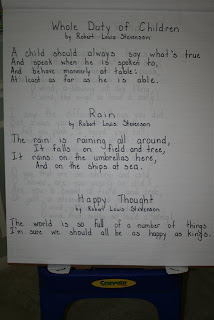 Whole Duty of Children
by Robert Louis Stevenson
A child should always say what's true
And speak when he is spoken to,
And behave mannerly at table:
At least as far as he is able.
Rain
by Robert Louis Stevenson
The rain is raining all around,
It falls on field and tree,
It rains on the umbrellas here,
And on the ships at sea.
Happy Thought
by Robert Louis Stevenson
The world is so full of a number of things
I'm sure we should all be as happy as kings.
Crayola